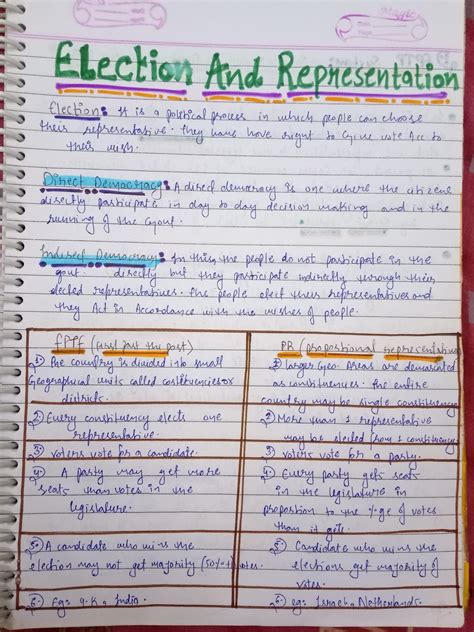 Magic
Election And Representation
Election: It is a political process in which people can choose
their representative. They have have right to Give vote Acc to
their wish.
Direct Democracy: A direct democracy is one where the citizens
directly participate in day to day decision making and in the
running of the Govt.
Indirect Democracy: In this the people do not participate in the
govt directly but they participate indirectly through their
elected representatives. The people elect their representatives and
they Act in Accordance with the wishes of people.
FPTP (first past the post)
1) The country is divided into small
Geographical units called constituencies or
districts.
2) Every constituency elects one
representative.
3) voters vote for a candidate.
4) A party may get more
seats than votes in the
legislature.
5) A candidate who wins the
election may not get majority (50%+1) votes
6) Eg: U.K, India.
PR (proportional representation)
1) larger Geo. Areas are demarcated
as constituencies. The entire
country may be single constituency
2) More than 1 representative
may be elected from 1 constituency
3) voters vote for a party.
4) Every party gets seats
in the legislature in
proportion to the %ge of votes
than it gets.
5) Candidate who wins the
elections get majority of
votes.
6) eg: Israel, Netherlands.